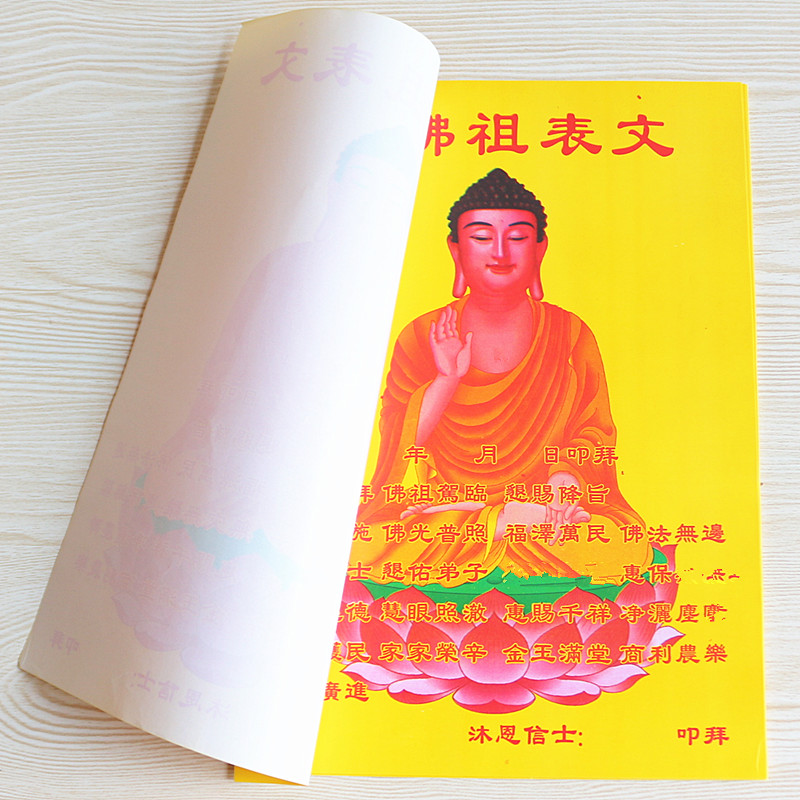 佛祖表文
年 月 日叩拜
拜 佛祖駕臨 懇賜降旨
施 佛光普照 福澤萬民 佛法無邊
士 懇佑弟子 惠保
德 慧眼照澈 惠賜千祥 净灑塵
民 家家榮辛 金玉滿堂 商利農樂
廣進
沐恩信士: 叩拜